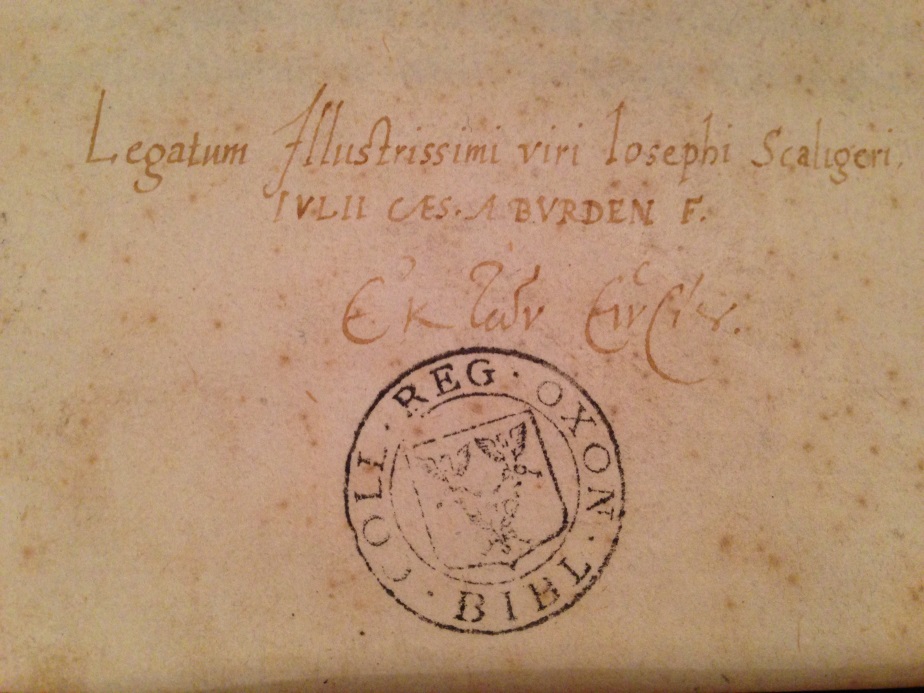 Legatum Illustrissimi viri Iosephi Scaligeri,
IVLII CÆS. A BVRDEN. F.
Ἐκ τῶν Εἱνσίου.
COLL · REG · OXON · BIBL ·